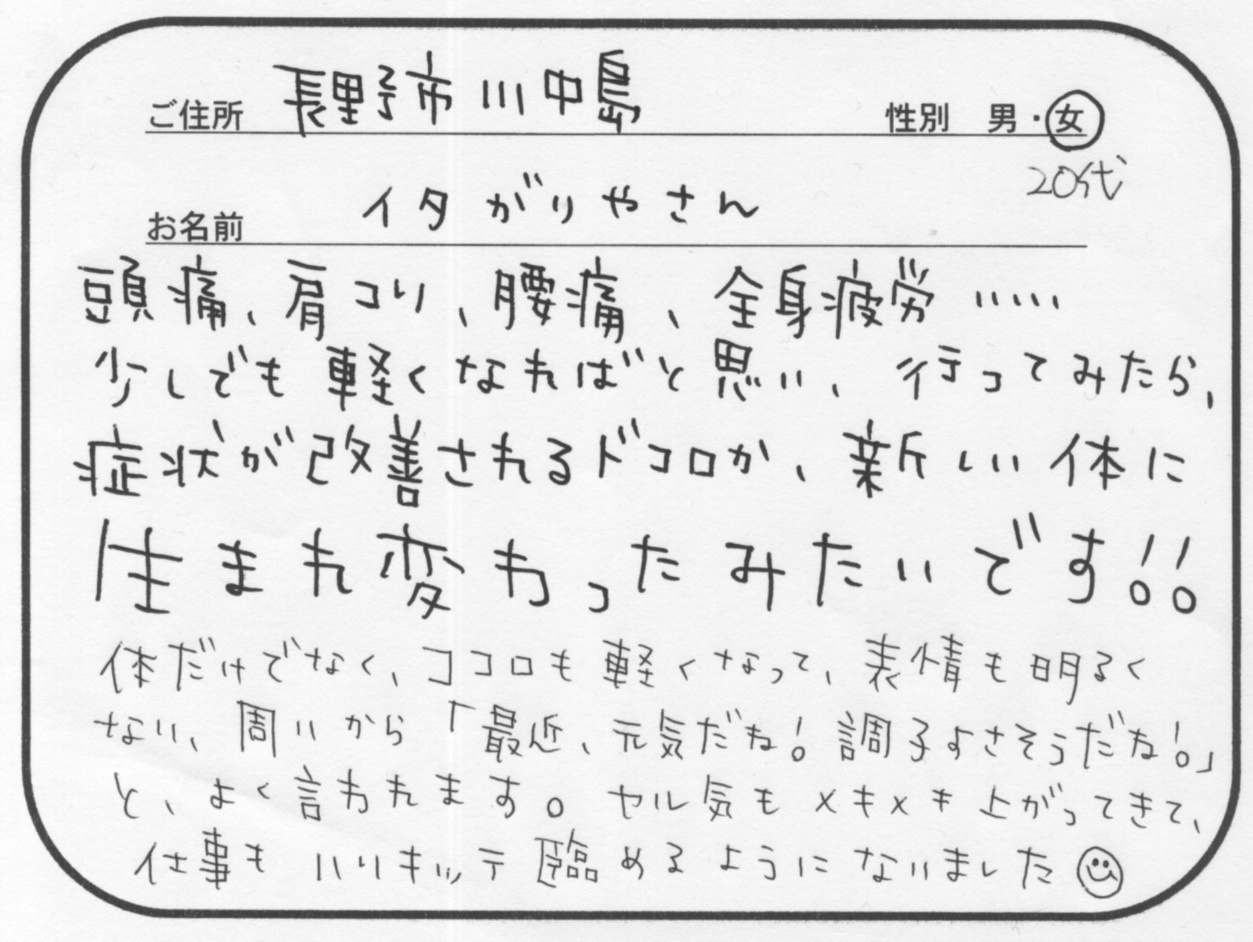 ご住所 長野市川中島 性別 男・女
20代
お名前 イタがりやさん
頭痛、肩コリ、腰痛、全身疲労……
少しでも軽くなればと思い、行ってみたら、
症状が改善されるドコロか、新しい体に
生まれ変わったみたいです!!
体だけでなく、ココロも軽くなって、表情も明るく
なり、周りから「最近、元気だね!調子よさそうだね!」
と、よく言われます。ヤル気もメキメキ上がってきて、
仕事もハリキッテ臨めるようになりました